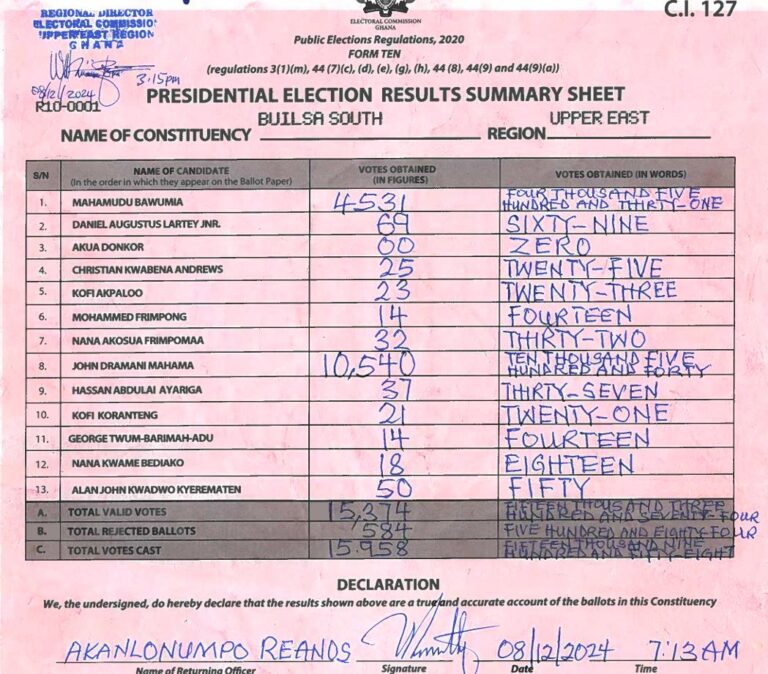 C.I. 127
REGIONAL DIRECTOR
ELECTORAL COMMISSION
UPPER EAST REGION
GHANA
08/12/2024 3:15pm
R10-0001
ELECTORAL COMMISSION
GHANA
Public Elections Regulations, 2020
FORM TEN
(regulations 3(1)(m), 44 (7)(c), (d), (e), (g), (h), 44 (8), 44(9) and 44(9)(a))
PRESIDENTIAL ELECTION RESULTS SUMMARY SHEET
NAME OF CONSTITUENCY BUILSA SOUTH REGION UPPER EAST
S/N NAME OF CANDIDATE (In the order in which they appear on the Ballot Paper) VOTES OBTAINED (IN FIGURES) VOTES OBTAINED (IN WORDS)
1. MAHAMUDU BAWUMIA 4531 FOUR THOUSAND FIVE HUNDRED AND THIRTY-ONE
2. DANIEL AUGUSTUS LARTEY JNR. 69 SIXTY-NINE
3. AKUA DONKOR 00 ZERO
4. CHRISTIAN KWABENA ANDREWS 25 TWENTY-FIVE
5. KOFI AKPALOO 23 TWENTY-THREE
6. MOHAMMED FRIMPONG 14 FOURTEEN
7. NANA AKOSUA FRIMPOMAA 32 THIRTY-TWO
8. JOHN DRAMANI MAHAMA 10,540 TEN THOUSAND FIVE HUNDRED AND FORTY
9. HASSAN ABDULAI AYARIGA 37 THIRTY-SEVEN
10. KOFI KORANTENG 21 TWENTY-ONE
11. GEORGE TWUM-BARIMAH-ADU 14 FOURTEEN
12. NANA KWAME BEDIAKO 18 EIGHTEEN
13. ALAN JOHN KWADWO KYEREMATEN 50 FIFTY
A. TOTAL VALID VOTES 15,374 FIFTEEN THOUSAND THREE HUNDRED AND SEVENTY-FOUR
B. TOTAL REJECTED BALLOTS 584 FIVE HUNDRED AND EIGHTY-FOUR
C. TOTAL VOTES CAST 15.958 FIFTEEN THOUSAND NINE HUNDRED AND FIFTY-EIGHT
DECLARATION
We, the undersigned, do hereby declare that the results shown above are a true and accurate account of the ballots in this Constituency
AKANLONUMPO REANDS 08/12/2024 7:13 AM
Name of Returning Officer Signature Date Time